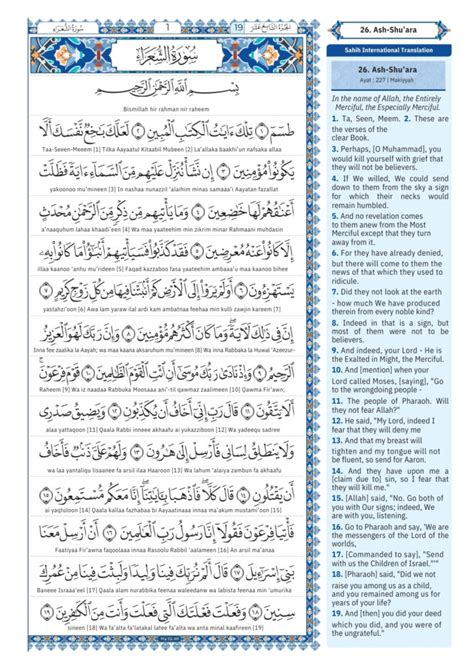 سُورَةُ الشُّعَرَاء
1
19
الجُزءُ التَّاسِعَ عَشَرَ
سُورَةُ الشُّعَرَاءِ
بِسۡمِ ٱللَّهِ ٱلرَّحۡمَٰنِ ٱلرَّحِيمِ
Bismillah hir rahman nir raheem
طسٓمٓ ١ تِلۡكَ ءَايَٰتُ ٱلۡكِتَٰبِ ٱلۡمُبِينِ ٢ لَعَلَّكَ بَٰخِعٞ نَّفۡسَكَ أَلَّا
Taa-Seeen-Meeem [1] Tilka Aayaatul Kitaabil Mubeen [2] La'allaka baakhi'un nafsaka allaa
يَكُونُواْ مُؤۡمِنِينَ ٣ إِن نَّشَأۡ نُنَزِّلۡ عَلَيۡهِم مِّنَ ٱلسَّمَآءِ ءَايَةٗ فَظَلَّتۡ
yakoonoo mu'mineen [3] In nashaa nunazzil 'alaihim minas samaaa'i Aayatan fazallat
أَعۡنَٰقُهُمۡ لَهَا خَٰضِعِينَ ٤ وَمَا يَأۡتِيهِم مِّن ذِكۡرٖ مِّنَ ٱلرَّحۡمَٰنِ مُحۡدَثٍ
a'naaquhum lahaa khaadi'een [4] Wa maa yaateehim min zikrim minar Rahmaani muhdasin
إِلَّا كَانُواْ عَنۡهُ مُعۡرِضِينَ ٥ فَقَدۡ كَذَّبُواْ فَسَيَأۡتِيهِمۡ أَنۢبَٰٓؤُاْ مَا كَانُواْ بِهِۦ
illaa kaanoo 'anhu mu'rideen [5] Faqad kazzaboo fasa yaateehim ambaaa'u maa kaanoo bihee
يَسۡتَهۡزِءُونَ ٦ أَوَلَمۡ يَرَوۡاْ إِلَى ٱلۡأَرۡضِ كَمۡ أَنۢبَتۡنَا فِيهَا مِن كُلِّ زَوۡجٖ كَرِيمٍ
yastahzi'oon [6] Awa lam yaraw ilal ardi kam ambatnaa feehaa min kulli zawjin kareem [7]
٧ إِنَّ فِي ذَٰلِكَ لَأٓيَةٗۖ وَمَا كَانَ أَكۡثَرُهُم مُّؤۡمِنِينَ ٨ وَإِنَّ رَبَّكَ لَهُوَ ٱلۡعَزِيزُ
Inna fee zaalika la Aayah; wa maa kaana aksaruhum mu'mineen [8] Wa inna Rabbaka la Huwal 'Azeezur-
ٱلرَّحِيمُ ٩ وَإِذۡ نَادَىٰ رَبُّكَ مُوسَىٰٓ أَنِ ٱئۡتِ ٱلۡقَوۡمَ ٱلظَّٰلِمِينَ ١٠ قَوۡمَ فِرۡعَوۡنَۚ
Raheem [9] Wa iz naadaa Rabbuka Moosaaa ani'-til qawmaz zaalimeen [10] Qawma Fir'awn;
أَلَا يَتَّقُونَ ١١ قَالَ رَبِّ إِنِّيٓ أَخَافُ أَن يُكَذِّبُونِ ١٢ وَيَضِيقُ صَدۡرِي
alaa yattaqoon [11] Qaala Rabbi inneee akhaafu ai yukazziboon [12] Wa yadeequ sadree
وَلَا يَنطَلِقُ لِسَانِي فَأَرۡسِلۡ إِلَىٰ هَٰرُونَ ١٣ وَلَهُمۡ عَلَيَّ ذَنۢبٞ فَأَخَافُ
wa laa yantaliqu lisaanee fa arsil ilaa Haaroon [13] Wa lahum 'alaiya zambun fa akhaafu
أَن يَقۡتُلُونِ ١٤ قَالَ كَلَّاۖ فَٱذۡهَبَا بِـَٔايَٰتِنَآۖ إِنَّا مَعَكُم مُّسۡتَمِعُونَ ١٥
ai yaqtuloon [14] Qaala kallaa fazhabaa bi Aayaatinaaa innaa ma'akum mustami'oon [15]
فَأۡتِيَا فِرۡعَوۡنَ فَقُولَآ إِنَّا رَسُولُ رَبِّ ٱلۡعَٰلَمِينَ ١٦ أَنۡ أَرۡسِلۡ
Faatiyaa Fir'awna faqoolaaa innaa Rasoolu Rabbil 'aalameen [16] An arsil ma'anaa
مَعَنَا بَنِيٓ إِسۡرَٰٓءِيلَ ١٧ قَالَ أَلَمۡ نُرَبِّكَ فِينَا وَلِيدٗا وَلَبِثۡتَ فِينَا مِنۡ عُمُرِكَ
Baneee Israaa'eel [17] Qaala alam nurabbika feenaa waleedanw wa labista feenaa min 'umurika
سِنِينَ ١٨ وَفَعَلۡتَ فَعۡلَتَكَ ٱلَّتِي فَعَلۡتَ وَأَنتَ مِنَ ٱلۡكَٰفِرِينَ ١٩
sineen [18] Wa fa'alta fa'latakal latee fa'alta wa anta minal kaafireen [19]
26. Ash-Shu'ara
Sahih International Translation
26. Ash-Shu'ara
Ayat : 227 | Makiyyah
In the name of Allah, the Entirely
Merciful, the Especially Merciful.
1. Ta, Seen, Meem. 2. These are
the verses of the
clear Book.
3. Perhaps, [O Muhammad], you
would kill yourself with grief that
they will not be believers.
4. If We willed, We could send
down to them from the sky a sign
for which their necks would
remain humbled.
5. And no revelation comes
to them anew from the Most
Merciful except that they turn
away from it.
6. For they have already denied,
but there will come to them the
news of that which they used to
ridicule.
7. Did they not look at the earth
- how much We have produced
therein from every noble kind?
8. Indeed in that is a sign, but
most of them were not to be
believers.
9. And indeed, your Lord - He is
the Exalted in Might, the Merciful.
10. And [mention] when your
Lord called Moses, [saying], "Go
to the wrongdoing people -
11. The people of Pharaoh. Will
they not fear Allah?"
12. He said, "My Lord, indeed I
fear that they will deny me
13. And that my breast will
tighten and my tongue will not
be fluent, so send for Aaron.
14. And they have upon me a
[claim due to] sin, so I fear that
they will kill me."
15. [Allah] said, "No. Go both of
you with Our signs; indeed, We
are with you, listening.
16. Go to Pharaoh and say, 'We are
the messengers of the Lord of the
worlds,
17. [Commanded to say], "Send
with us the Children of Israel."'"
18. [Pharaoh] said, "Did we not
raise you among us as a child,
and you remained among us for
years of your life?
19. And [then] you did your deed
which you did, and you were of
the ungrateful."